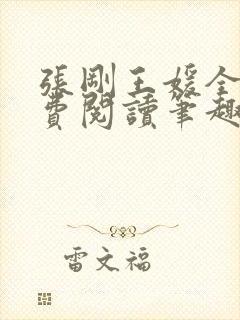 張剛王媛全
費閱讀筆趣
雷文福